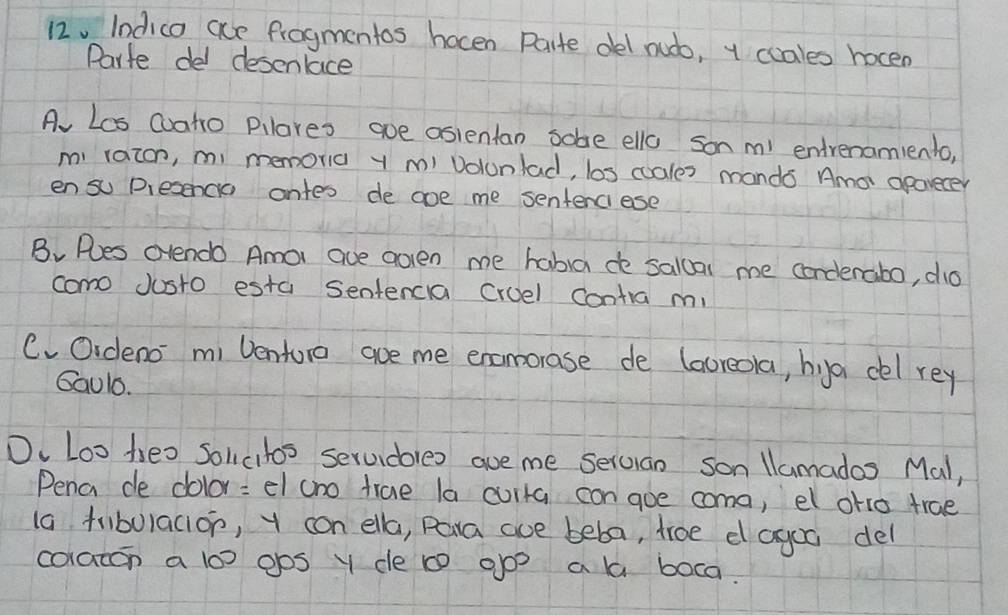 12. Indica que fragmentos hacen Parte del nudo, y cuales hacen
Parte del desenlace
A. Los cuatro Pilares que asientan sobre ella son mi entrenamiento,
mi razon, mi memoria y mi voluntad, los cuales mandó Amor aparecer
en su Presencia antes de que me sentenciese
B. Pues oyendo Amor que quien me habia de salvar me condenaba, dio
como Justo esta sentencia cruel contra mi
C. Ordenó mi ventura que me enamorase de laureola, hija del rey
Gaulo.
D. Los tres solicitos servidores que me servian son llamados Mal,
Pena de dolor: el uno trae la cuita con que coma, el otro trae
la tribulación, y con ella, Para que beba, trae el agua del
corazón a los ojos y de los ojos a la boca.